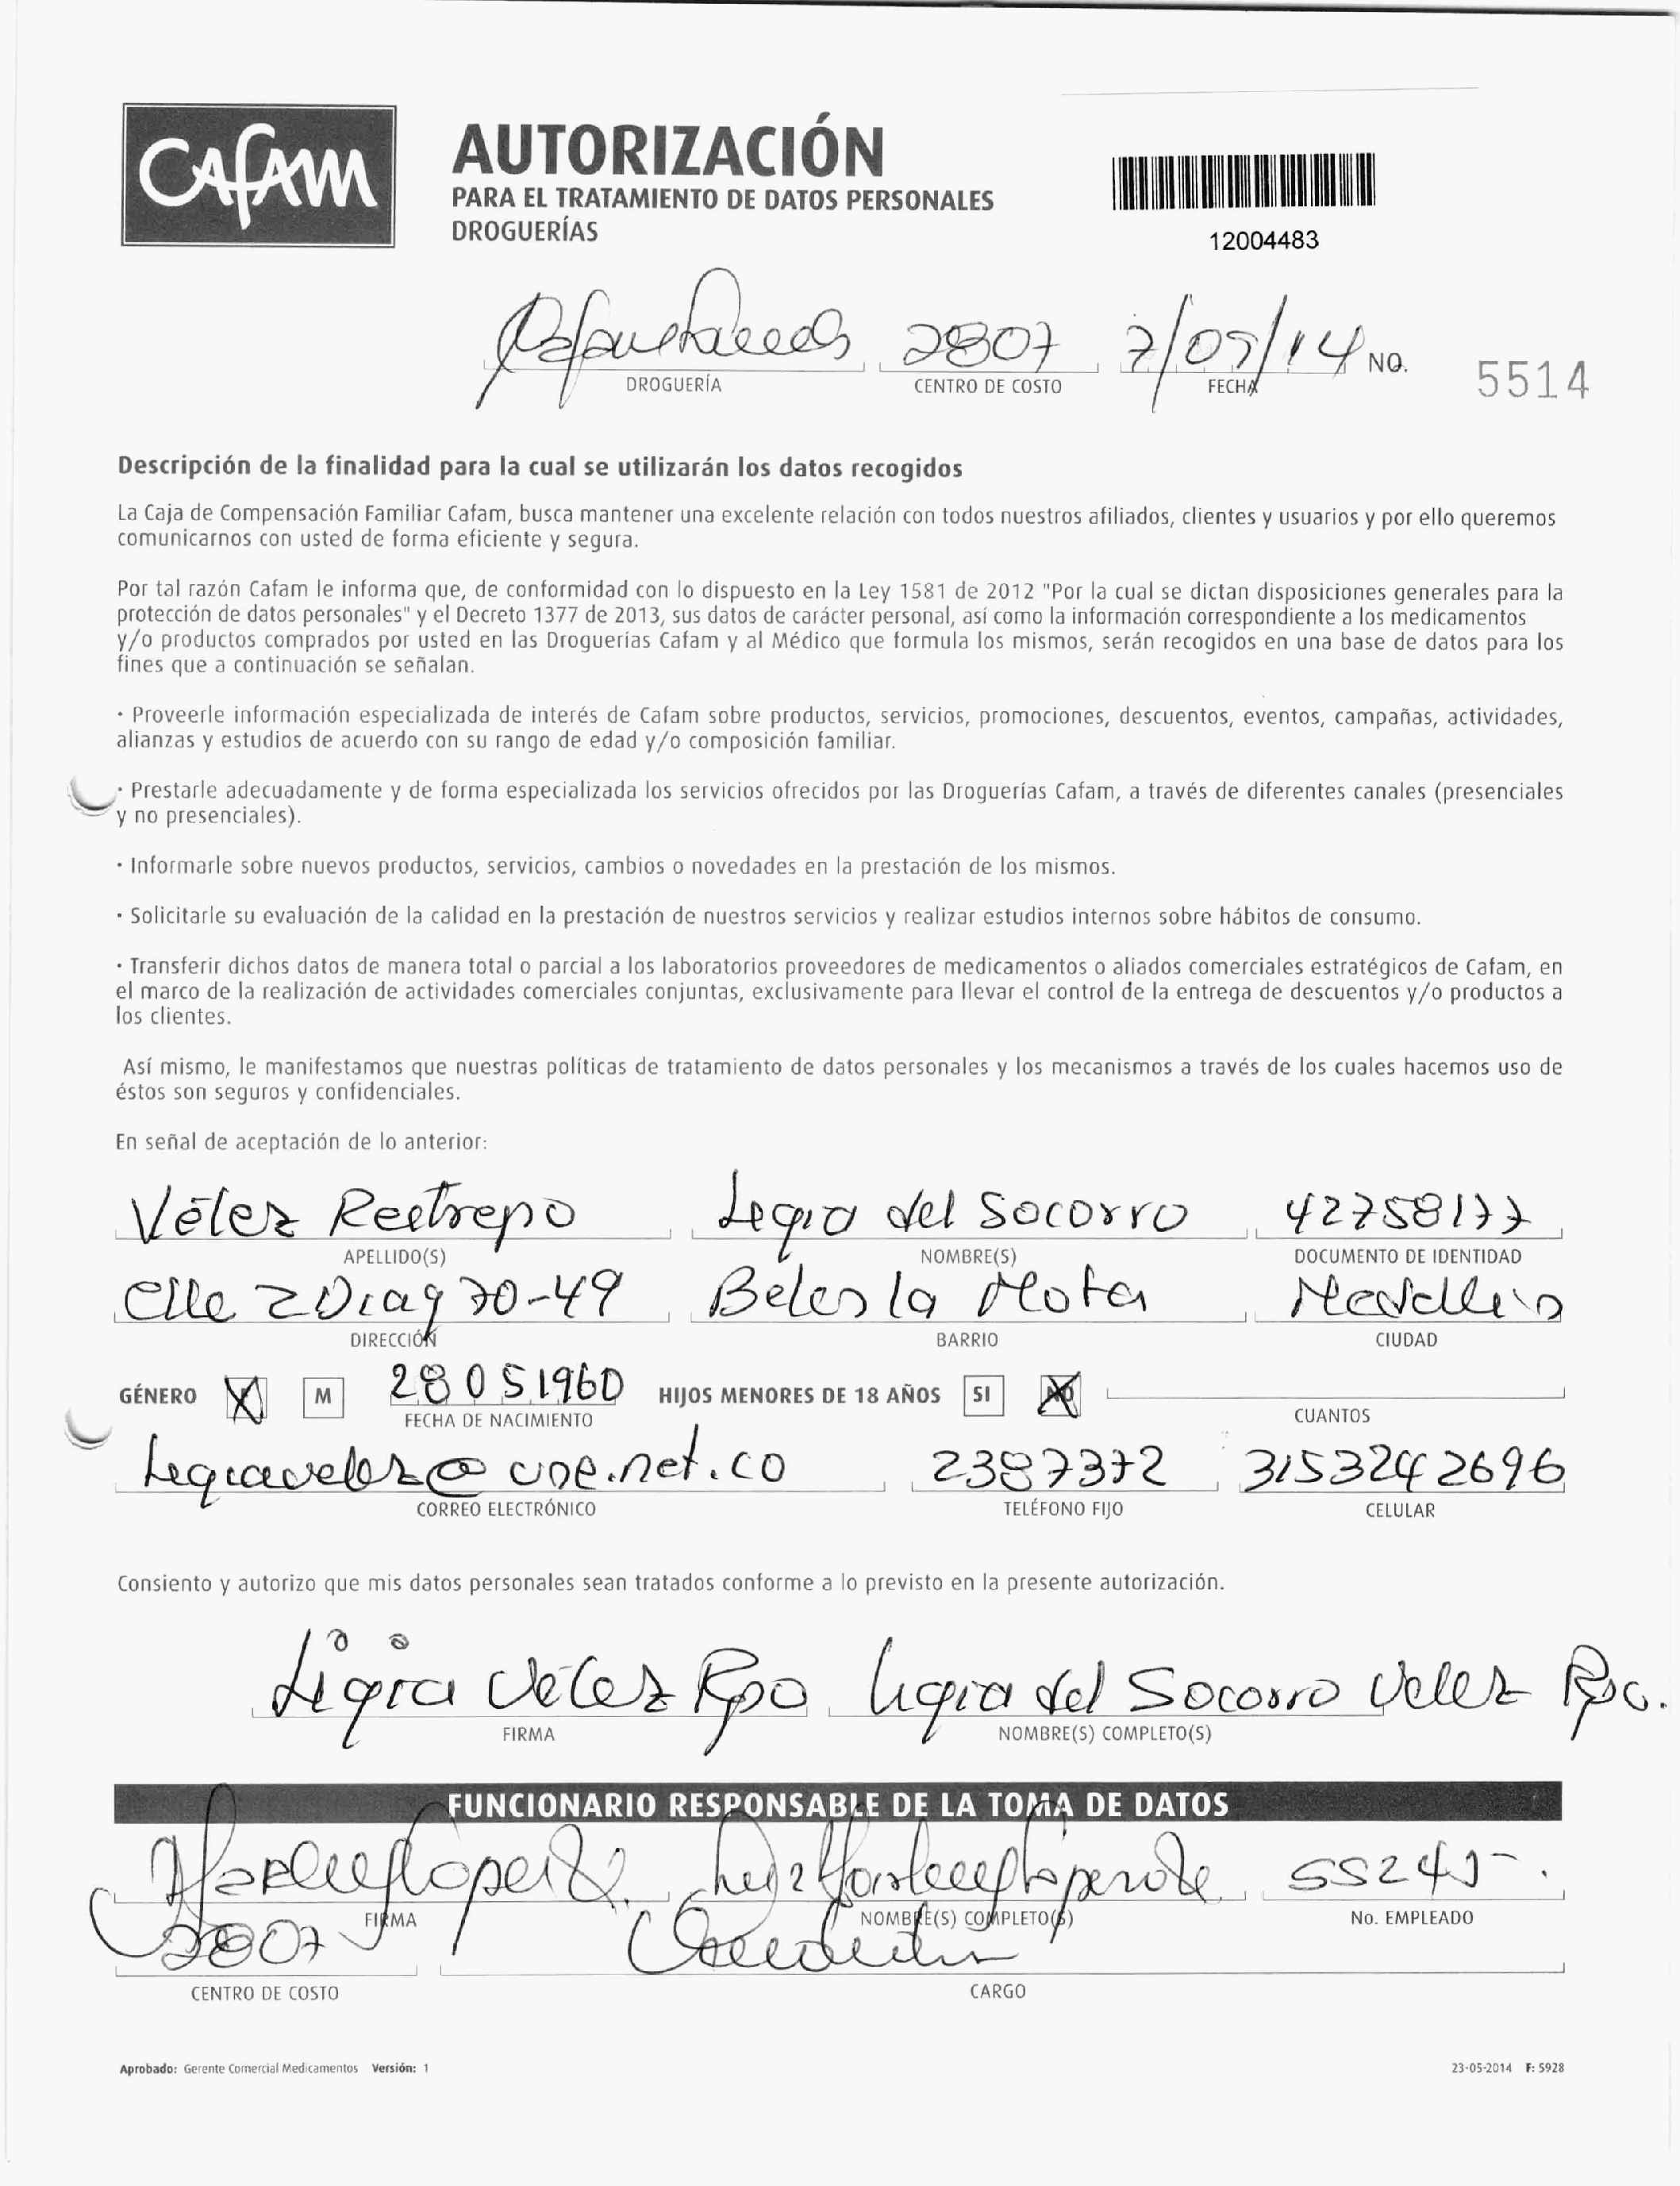 CAFAM
AUTORIZACIÓN
PARA EL TRATAMIENTO DE DATOS PERSONALES
DROGUERÍAS
12004483
2807 7/07/14 NO. 5514
DROGUERÍA CENTRO DE COSTO FECHA
Descripción de la finalidad para la cual se utilizarán los datos recogidos
La Caja de Compensación Familiar Cafam, busca mantener una excelente relación con todos nuestros afiliados, clientes y usuarios y por ello queremos
comunicarnos con usted de forma eficiente y segura.
Por tal razón Cafam le informa que, de conformidad con lo dispuesto en la Ley 1581 de 2012 "Por la cual se dictan disposiciones generales para la
protección de datos personales" y el Decreto 1377 de 2013, sus datos de carácter personal, así como la información correspondiente a los medicamentos
y/o productos comprados por usted en las Droguerías Cafam y al Médico que formula los mismos, serán recogidos en una base de datos para los
fines que a continuación se señalan.
· Proveerle información especializada de interés de Cafam sobre productos, servicios, promociones, descuentos, eventos, campañas, actividades,
alianzas y estudios de acuerdo con su rango de edad y/o composición familiar.
· Prestarle adecuadamente y de forma especializada los servicios ofrecidos por las Droguerías Cafam, a través de diferentes canales (presenciales
y no presenciales).
· Informarle sobre nuevos productos, servicios, cambios o novedades en la prestación de los mismos.
· Solicitarle su evaluación de la calidad en la prestación de nuestros servicios y realizar estudios internos sobre hábitos de consumo.
· Transferir dichos datos de manera total o parcial a los laboratorios proveedores de medicamentos o aliados comerciales estratégicos de Cafam, en
el marco de la realización de actividades comerciales conjuntas, exclusivamente para llevar el control de la entrega de descuentos y/o productos a
los clientes.
Así mismo, le manifestamos que nuestras políticas de tratamiento de datos personales y los mecanismos a través de los cuales hacemos uso de
éstos son seguros y confidenciales.
En señal de aceptación de lo anterior:
Vélez Restrepo Ligia del Socorro 42758177
APELLIDO(S) NOMBRE(S) DOCUMENTO DE IDENTIDAD
Clle 2 Diag 70-49 Belen la Mota Medellin
DIRECCIÓN BARRIO CIUDAD
GÉNERO M 28051960 HIJOS MENORES DE 18 AÑOS SI NO
FECHA DE NACIMIENTO CUANTOS
ligiavelez@une.net.co 2387372 3153242696
CORREO ELECTRÓNICO TELÉFONO FIJO CELULAR
Consiento y autorizo que mis datos personales sean tratados conforme a lo previsto en la presente autorización.
Ligia Vélez Rpo Ligia del Socorro Velez Rpo.
FIRMA NOMBRE(S) COMPLETO(S)
FUNCIONARIO RESPONSABLE DE LA TOMA DE DATOS
FIRMA NOMBRE(S) COMPLETO(S) No. EMPLEADO
2807
CENTRO DE COSTO CARGO
Aprobado: Gerente Comercial Medicamentos Versión: 1 23-05-2014 F: 5928